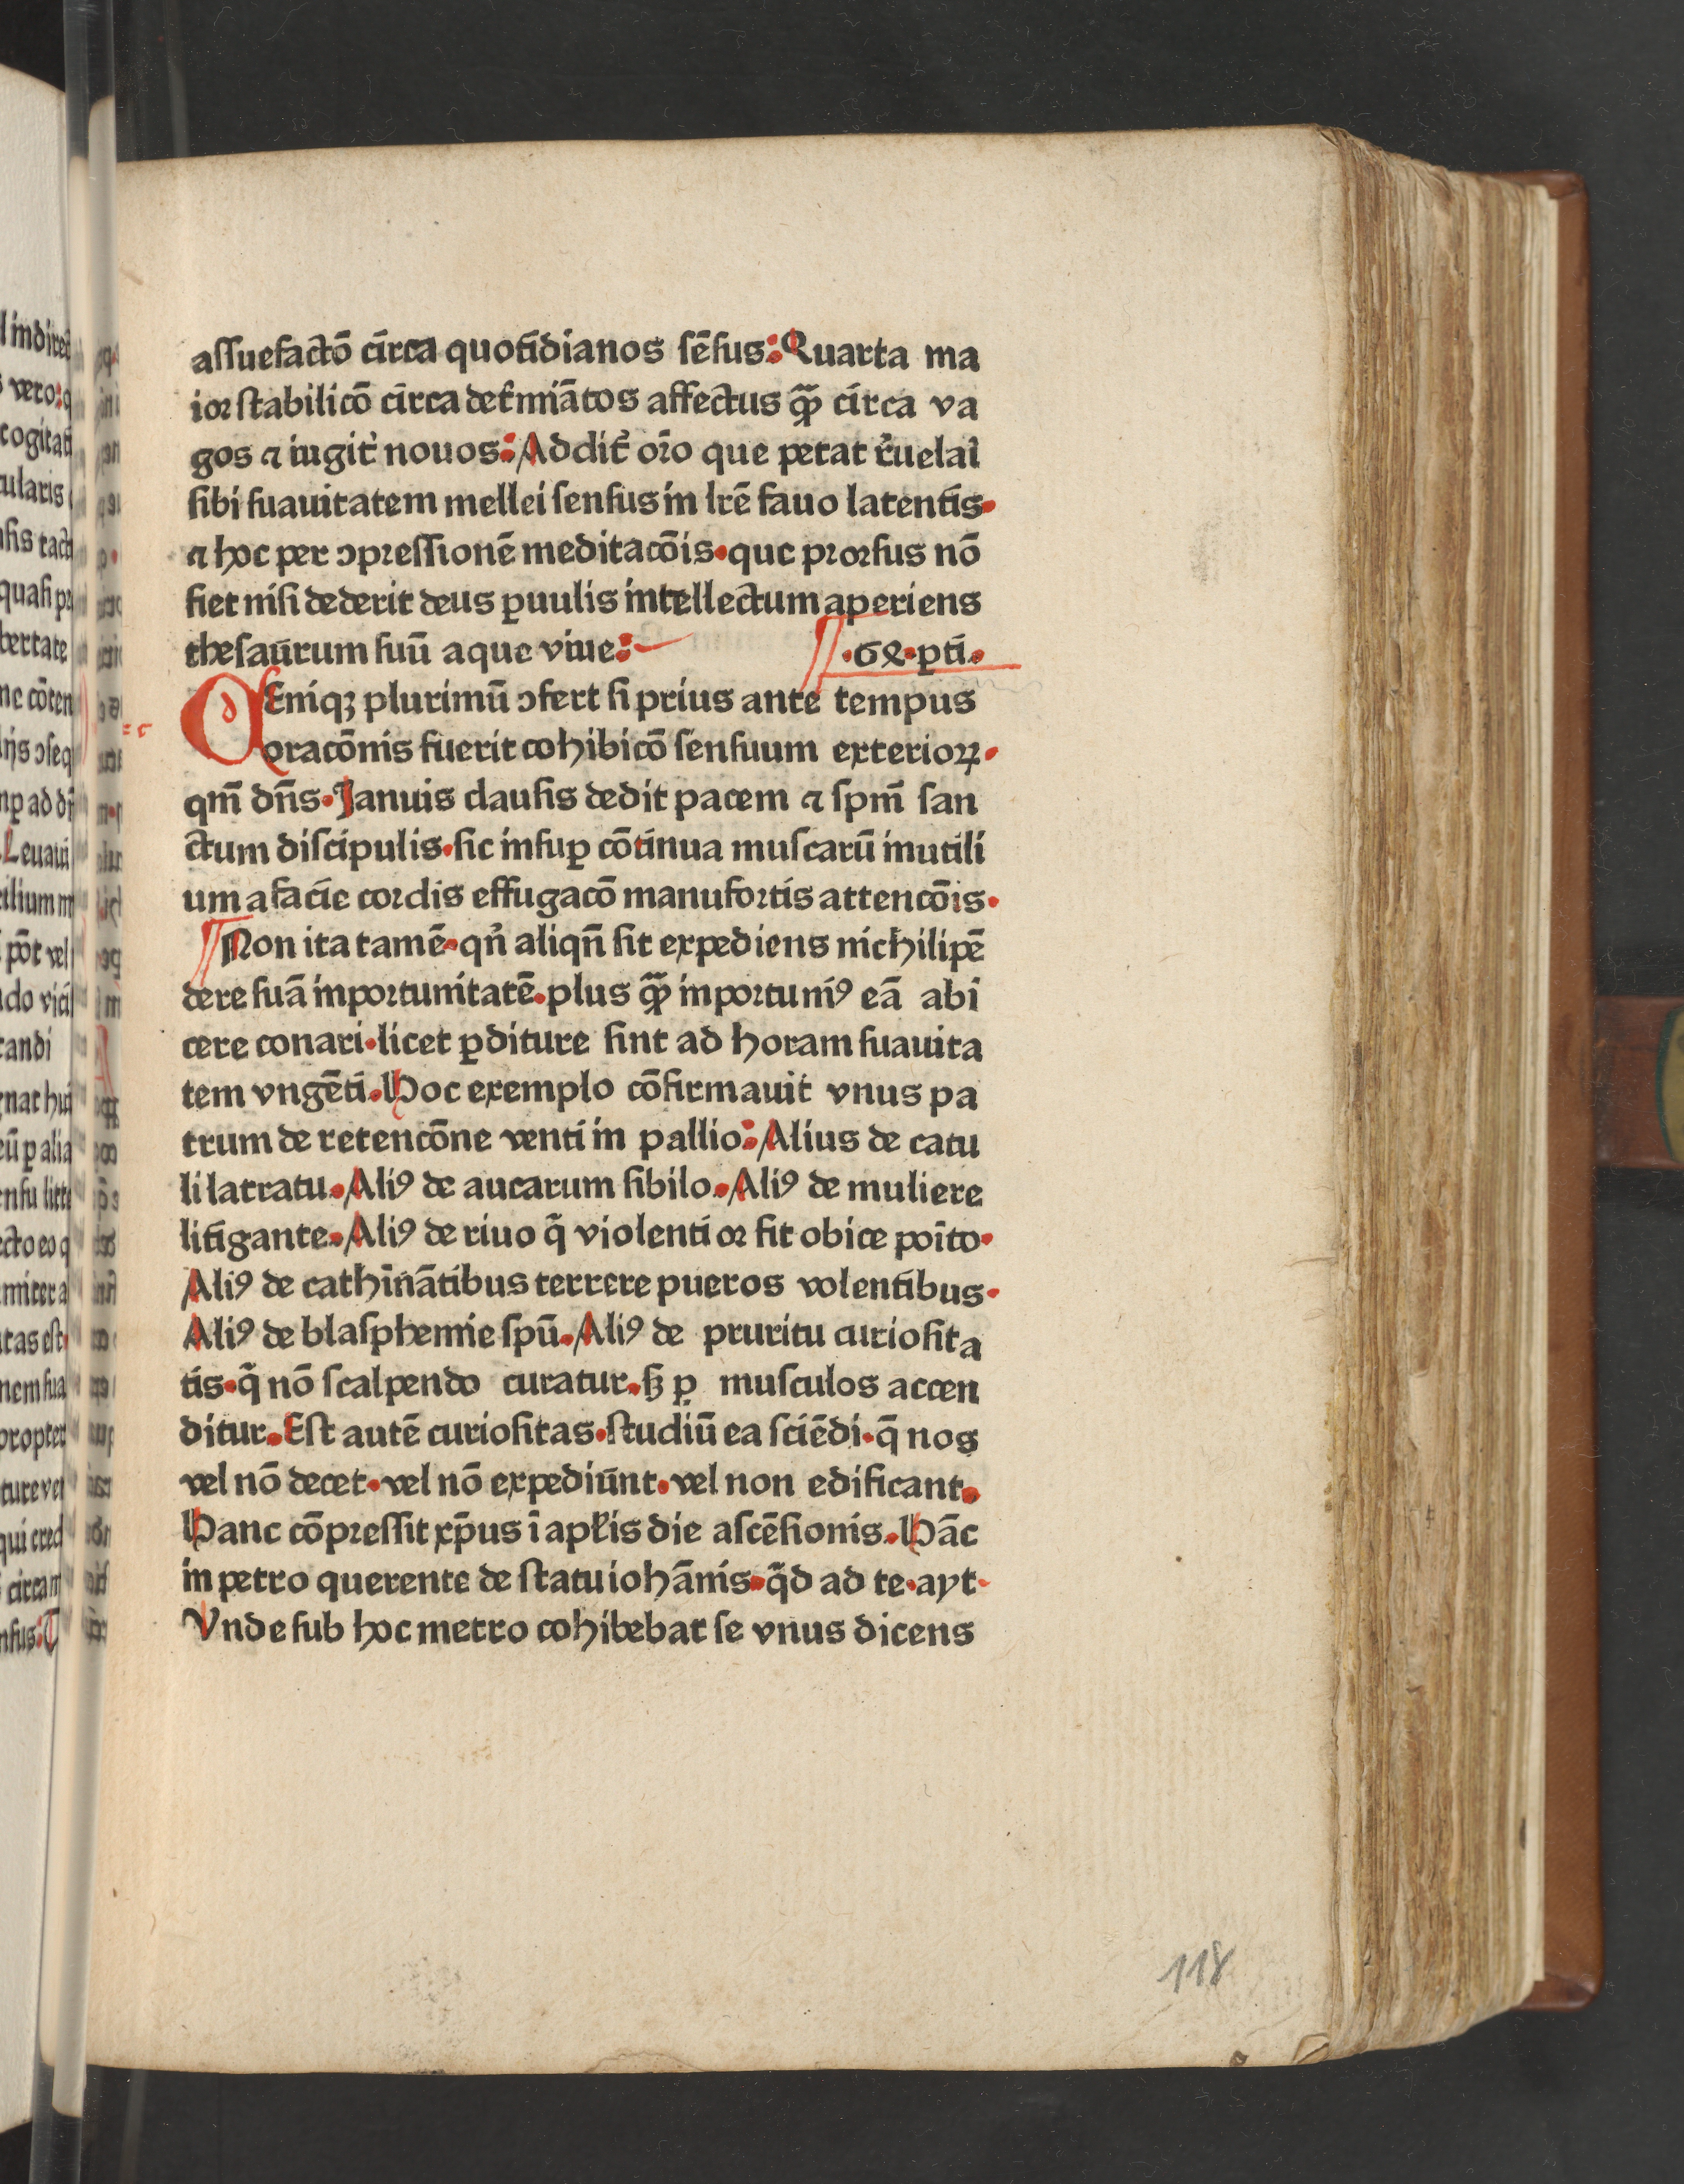 assuefactō circa quotidianos sēsus: Quarta ma
ior stabilicō circa deťmiātos affectus qꝫ̄ circa va
gos ⁊ iugiť nouos: Addiť orō que petat ꝛ̓uelaı̄
sibi suauitatem mellei sensus in lrē fauo latentis.
⁊ hoc per ↄpressionē meditacōis. que prorsus nō
fiet nisi dederit deus ꝑuulis intellectum aperiens
thesaūrum suū aque viue: .68. ꝑti.
DEniqꝫ plurimū ↄfert si prius ante tempus
oracōnis fuerit cohibicō sensuum exterioꝝ.
qm̄ dn̄s. Januis clausis dedit pacem ⁊ spm̄ san
ctum discipulis. sic insuꝑ cōtinua muscarū inutili
um a facie cordis effugacō manufortis attencōis.
Non ita tamē. qn̄ aliqn̄ sit expediens nichilipē
dere suā inportunitatē. plus qꝫ̄ inportuniꝰ eā abi
cere conari. licet ꝑditure sint ad horam suauita
tem vngēti. Hoc exemplo cōfirmauit vnus pa
trum de retencōne venti in pallio: Alius de catu
li latratu. Aliꝰ de aucarum sibilo. Aliꝰ de muliere
litigante. Aliꝰ de riuo q̄ violentior fit obice poīto.
Aliꝰ de cathīnātibus terrere pueros volentibus.
Aliꝰ de blasphemie spū. Aliꝰ de pruritu curiosita
tis. q̄ nō scalpendo curatur. sꝫ ꝑ musculos accen
ditur. Est autē curiositas. studiū ea sciēdi. q̄ nos
vel nō decet. vel nō expediūnt. vel non edificant.
Hanc cōpressit xp̄us ī apl̄is die ascēsionis. Hāc
in petro querente de statu iohānis. q̄d ad te. ayt.
Vnde sub hoc metro cohibebat se vnus dicens
118